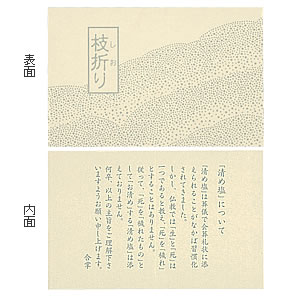 表面
枝折り
しお
内面
「清め塩」について
「清め塩」は葬儀で会葬礼状に添
えられることがなかば習慣化
されてきました。
しかし、仏教では「生」と「死」は
一つであると教え、「死」を「穢れ」
とすることはありません。
従って、「死」を「穢れたもの」と
して「お清め」する「清め塩」は添
えておりません。
何卒、以上の主旨をご理解下さ
いますようお願い申し上げます。
合掌